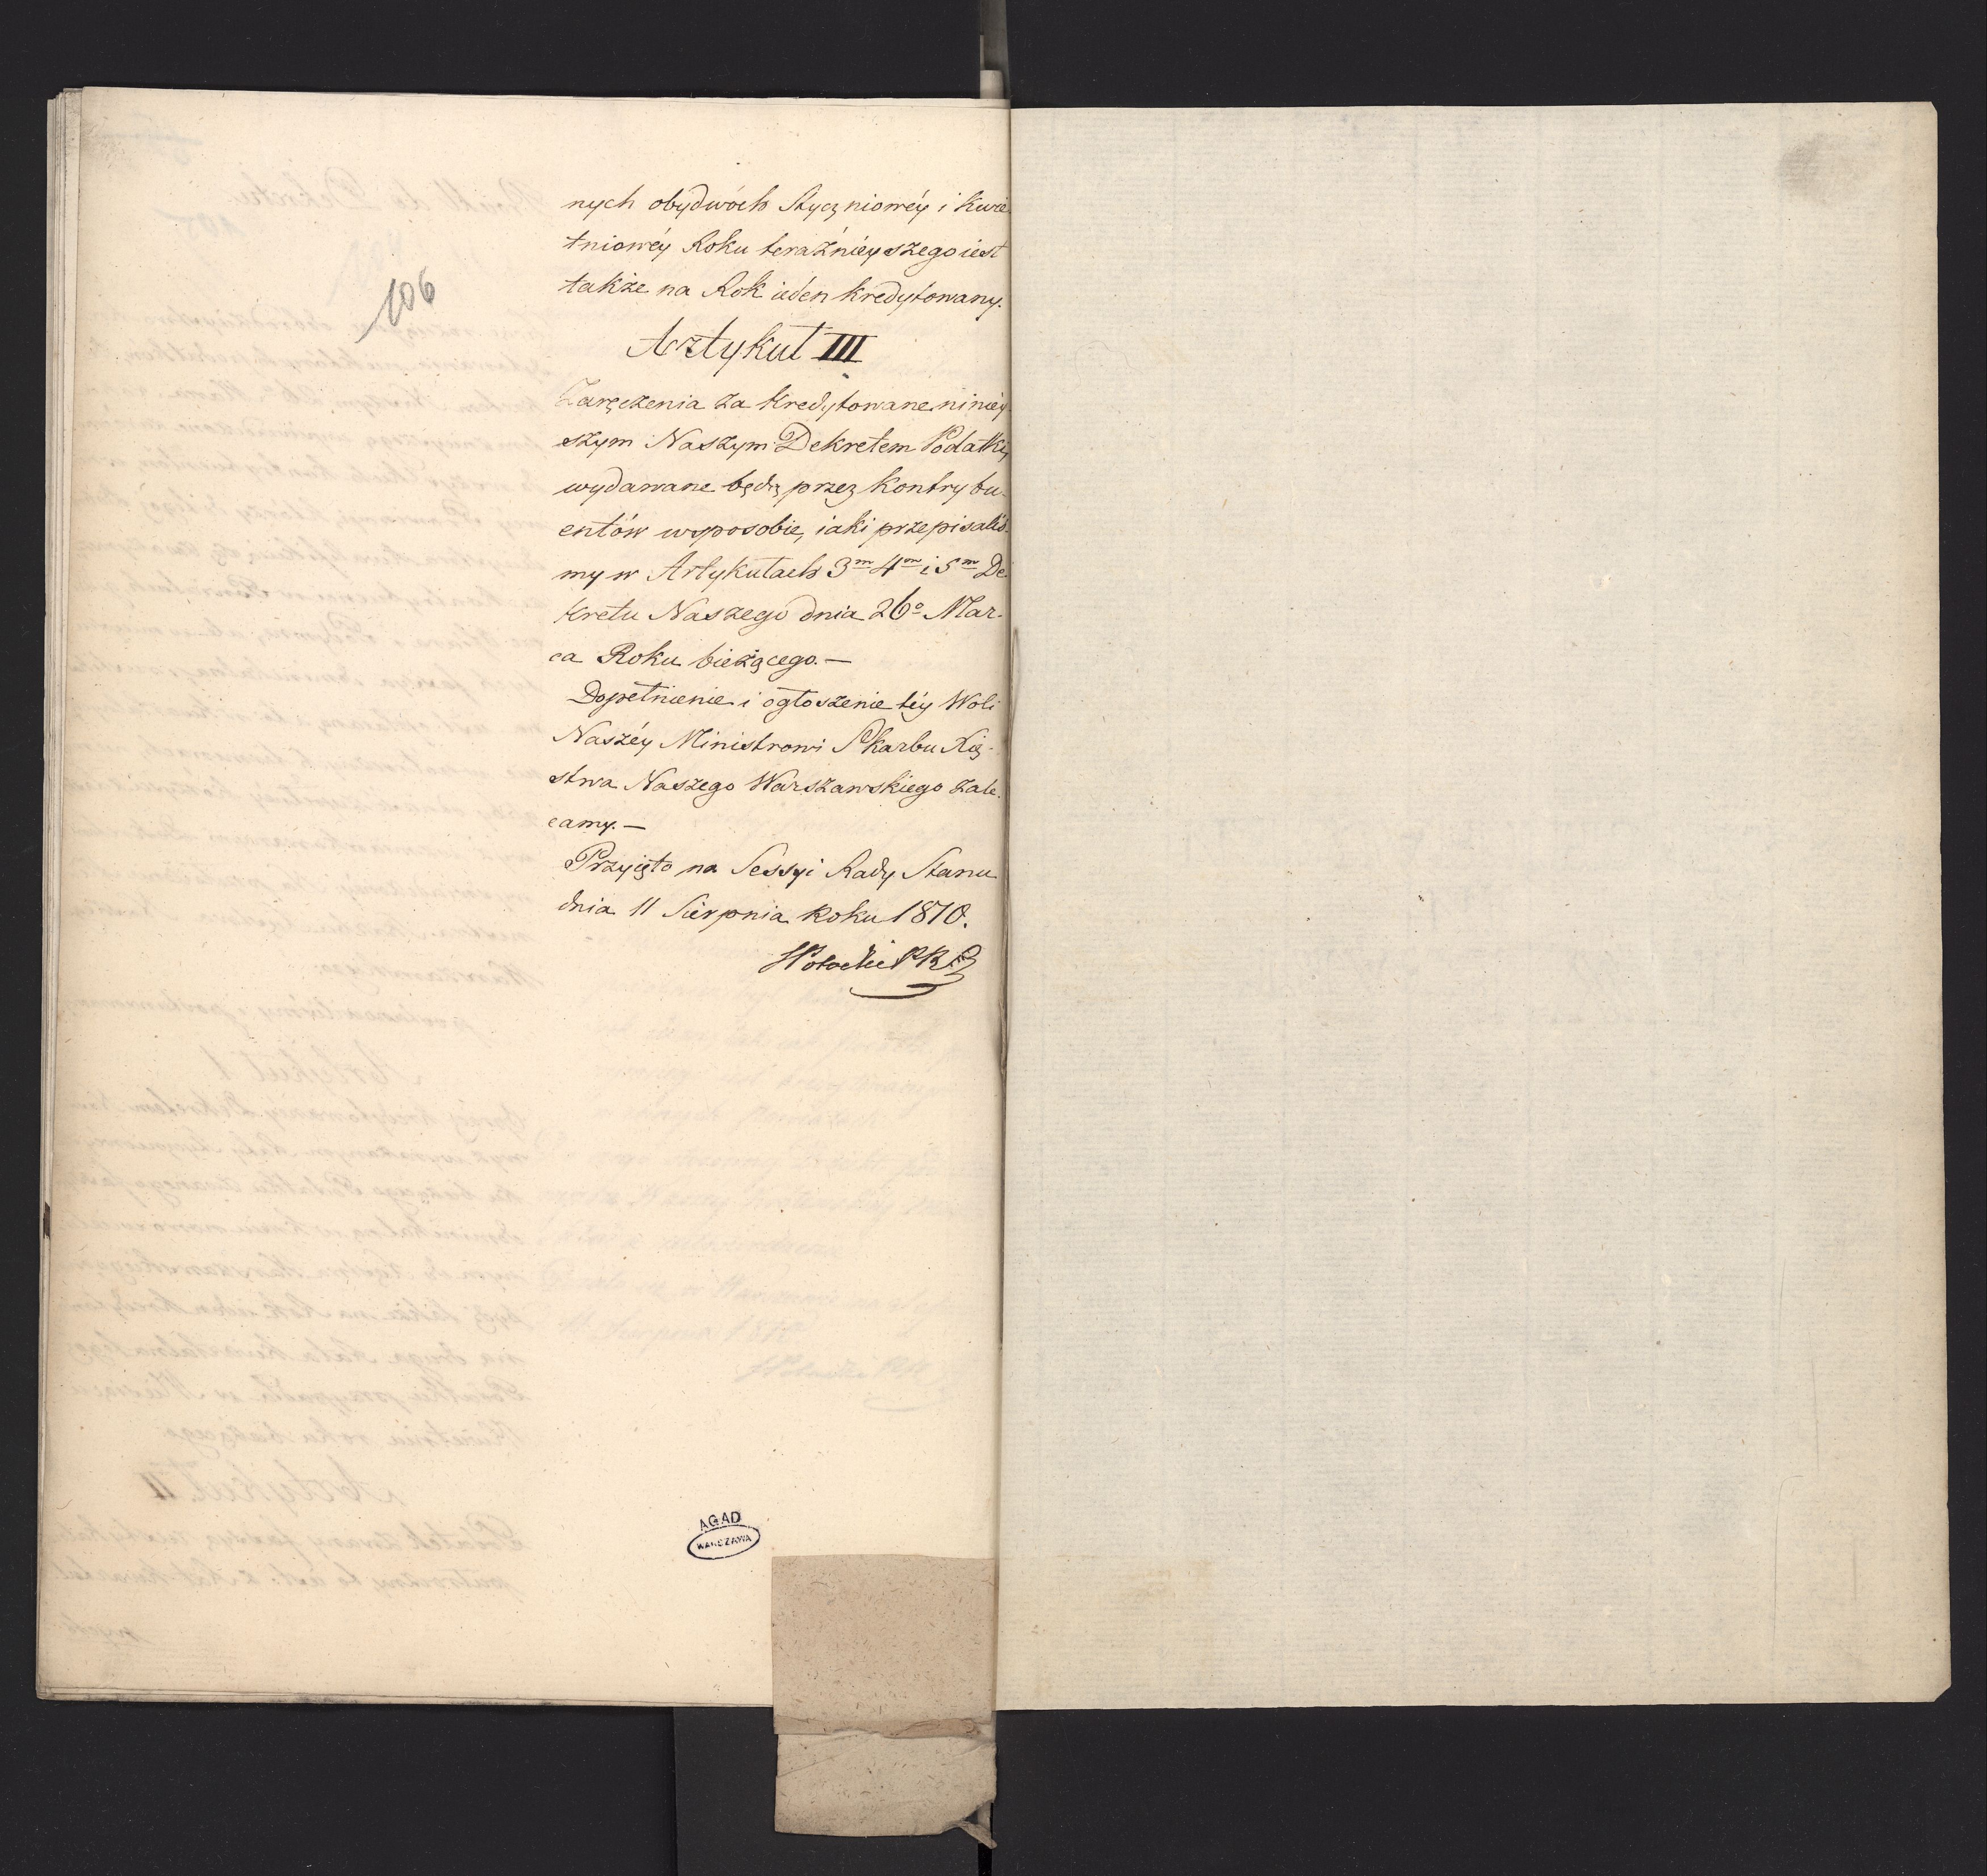 106
nych obydwóch Styczniowéy i Kwie
tniowéy Roku teraźniéyszego iest
także na Rok ieden kredytowany.
Artykuł III
Zaręczenia za kredytowane ninéy-
szym Naszym Dekretem Podatki,
wydawane będą przez Kontrybu-
entów wsposobie, iaki przepisaliś-
my w Artykułach 3m 4m i 5m De
kretu Naszego dnia 26o Mar-
ca Roku bieżącego.—
Dopełnienie i ogłoszenie téy Woli
Naszéy Ministrowi Skarbu Xię-
stwa Naszego Warszawskiego zale-
camy.—
Przyięto na Sessyi Rady Stanu
dnia 11 Sierpnia Roku 1810.
AGAD
WARSZAWA